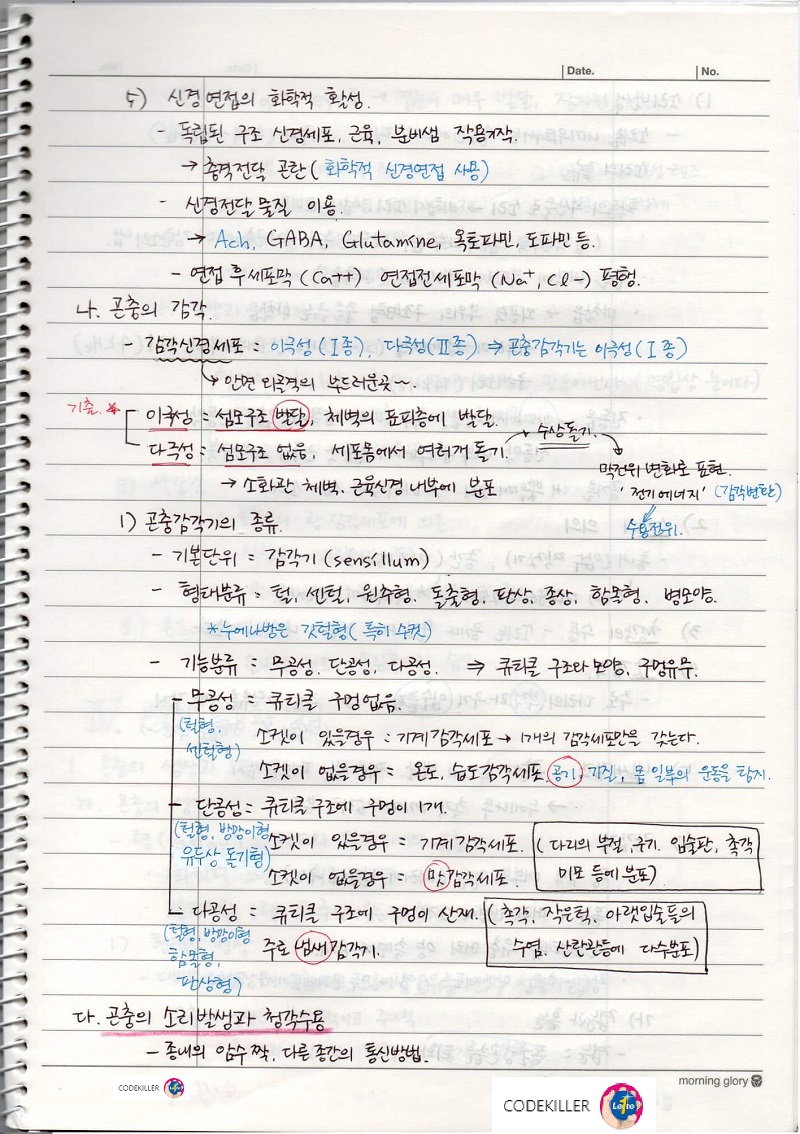 Date. No.
5) 신경연접의 화학적 활성.
- 독립된 구조 신경세포, 근육, 분비샘 작용기작.
→ 충격전달 곤란 ( 화학적 신경연접 사용)
- 신경전달 물질 이용.
→ Ach, GABA, Glutamine, 옥토파민, 도파민 등.
- 연접 후세포막 (Ca++) 연접전세포막 (Na+, Cl-) 평형.
나. 곤충의 감각.
- 감각신경세포 = 이극성 (I종), 다극성(II종) ⇒ 곤충감각기는 이극성 (I종)
↳ 안면 외골격의 부드러운곳~.
기출. ★ 이극성 = 섬모구조 발달, 체벽의 표피층에 발달.
다극성 = 섬모구조 없음, 세포몸에서 여러개 돌기. → 수상돌기.
→ 소화관 체벽, 근육신경 내부에 분포
막전위 변화로 표현.
'전기에너지' (감각변환)
수용전위.
1) 곤충감각기의 종류.
- 기본단위 = 감각기 (sensillum)
- 형태분류 = 털, 센털, 원추형, 돌출형, 판상, 종상, 함몰형, 병모양.
*누에나방은 깃털형 ( 특히 수컷)
- 기능분류 = 무공성. 단공성, 다공성. ⇒ 큐티클 구조와 모양, 구멍유무.
- 무공성 = 큐티클 구멍없음.
(털형, 센털형)
소켓이 있을경우 = 기계감각세포 → 1개의 감각세포만을 갖는다.
소켓이 없을경우 = 온도, 습도감각세포 공기, 기질, 몸 일부의 운동을 탐지.
- 단공성 = 큐티클 구조에 구멍이 1개.
(털형, 방망이형 유두상 돌기형)
소켓이 있을경우 = 기계감각세포. ( 다리의 부절, 구기. 입술판, 촉각
소켓이 없을경우 = 맛감각세포. 미모 등에 분포)
- 다공성 = 큐티클 구조에 구멍이 산재. ( 촉각, 작은턱, 아랫입술들의
(털형, 방망이형 함몰형, 판상형)
주로 냄새감각기. 수염, 산란관등에 다수분포)
다. 곤충의 소리발생과 청각수용
- 종내의 암수 짝, 다른종간의 통신방법.
CODEKILLER
morning glory
CODEKILLER
Lotto